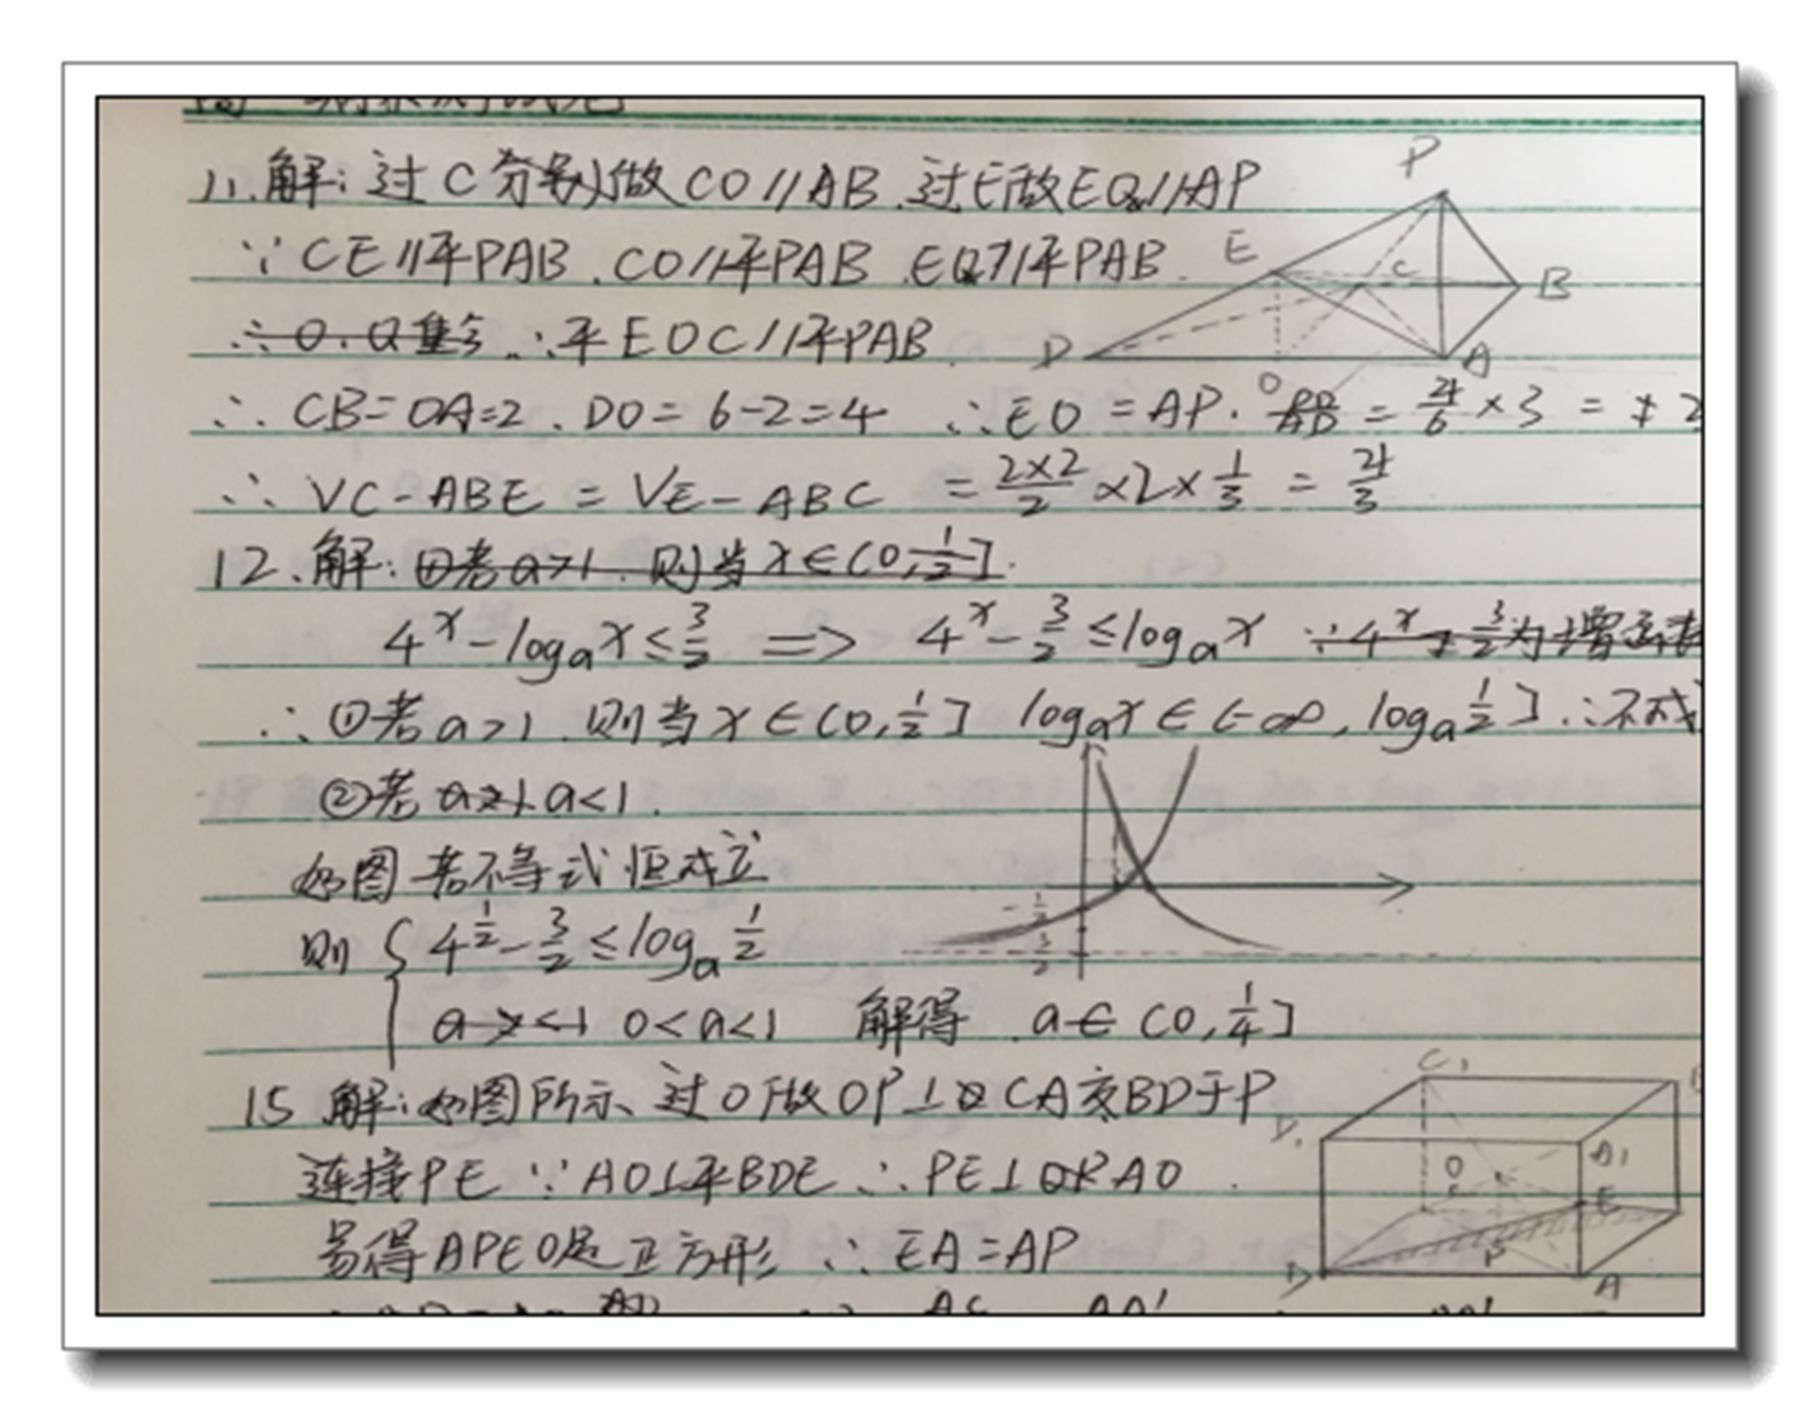 11.解:过C分别做CO//AB.过E做EQ//AP
∵CE//平PAB.CO//平PAB.EQ//平PAB.
∴O.Q重合.∴平EOC//平PAB
∴CB=OA=2.DO=6-2=4 ∴EO=AP·=4/6×3=2
∴VC-ABE=VE-ABC=2×2/2×2×1/3=4/3
12.解:①若a>1.则当x∈(0,1/2].
4^x-log_a x≤3/2 => 4^x-3/2≤log_a x ∵4^x-3/2为增函数
∴①若a>1.则当x∈(0,1/2] log_a x∈(-∞,log_a 1/2].∴不成
②若a>1 a<1.
如图若不等式恒成立
则{4^(1/2)-3/2≤log_a 1/2
0<a<1 解得.a∈(0,1/4]
15.解:如图所示、过O做OP⊥CA交BD于P
连接PE∵AO⊥平BDE∴PE⊥AO.
易得APEO是正方形∴EA=AP
P
E
C
B
D
O
A
-1/2
3/2
C₁
D₁
A₁
O
E
D
P
A